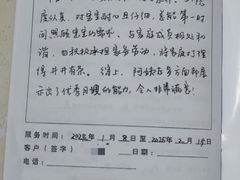 度认真、对宝宝耐心且仔细,总能第一时
间照顾宝宝的需求、与家庭成员相处和
谐、时执执承担家务劳动,将家庭打理
得井井有条。综上,阿姨在多方面都展
示出了优秀月嫂的能力,令人非常满意!
服务时间:2025年1月8日至2025年2月15日
客户(签字)
电话: